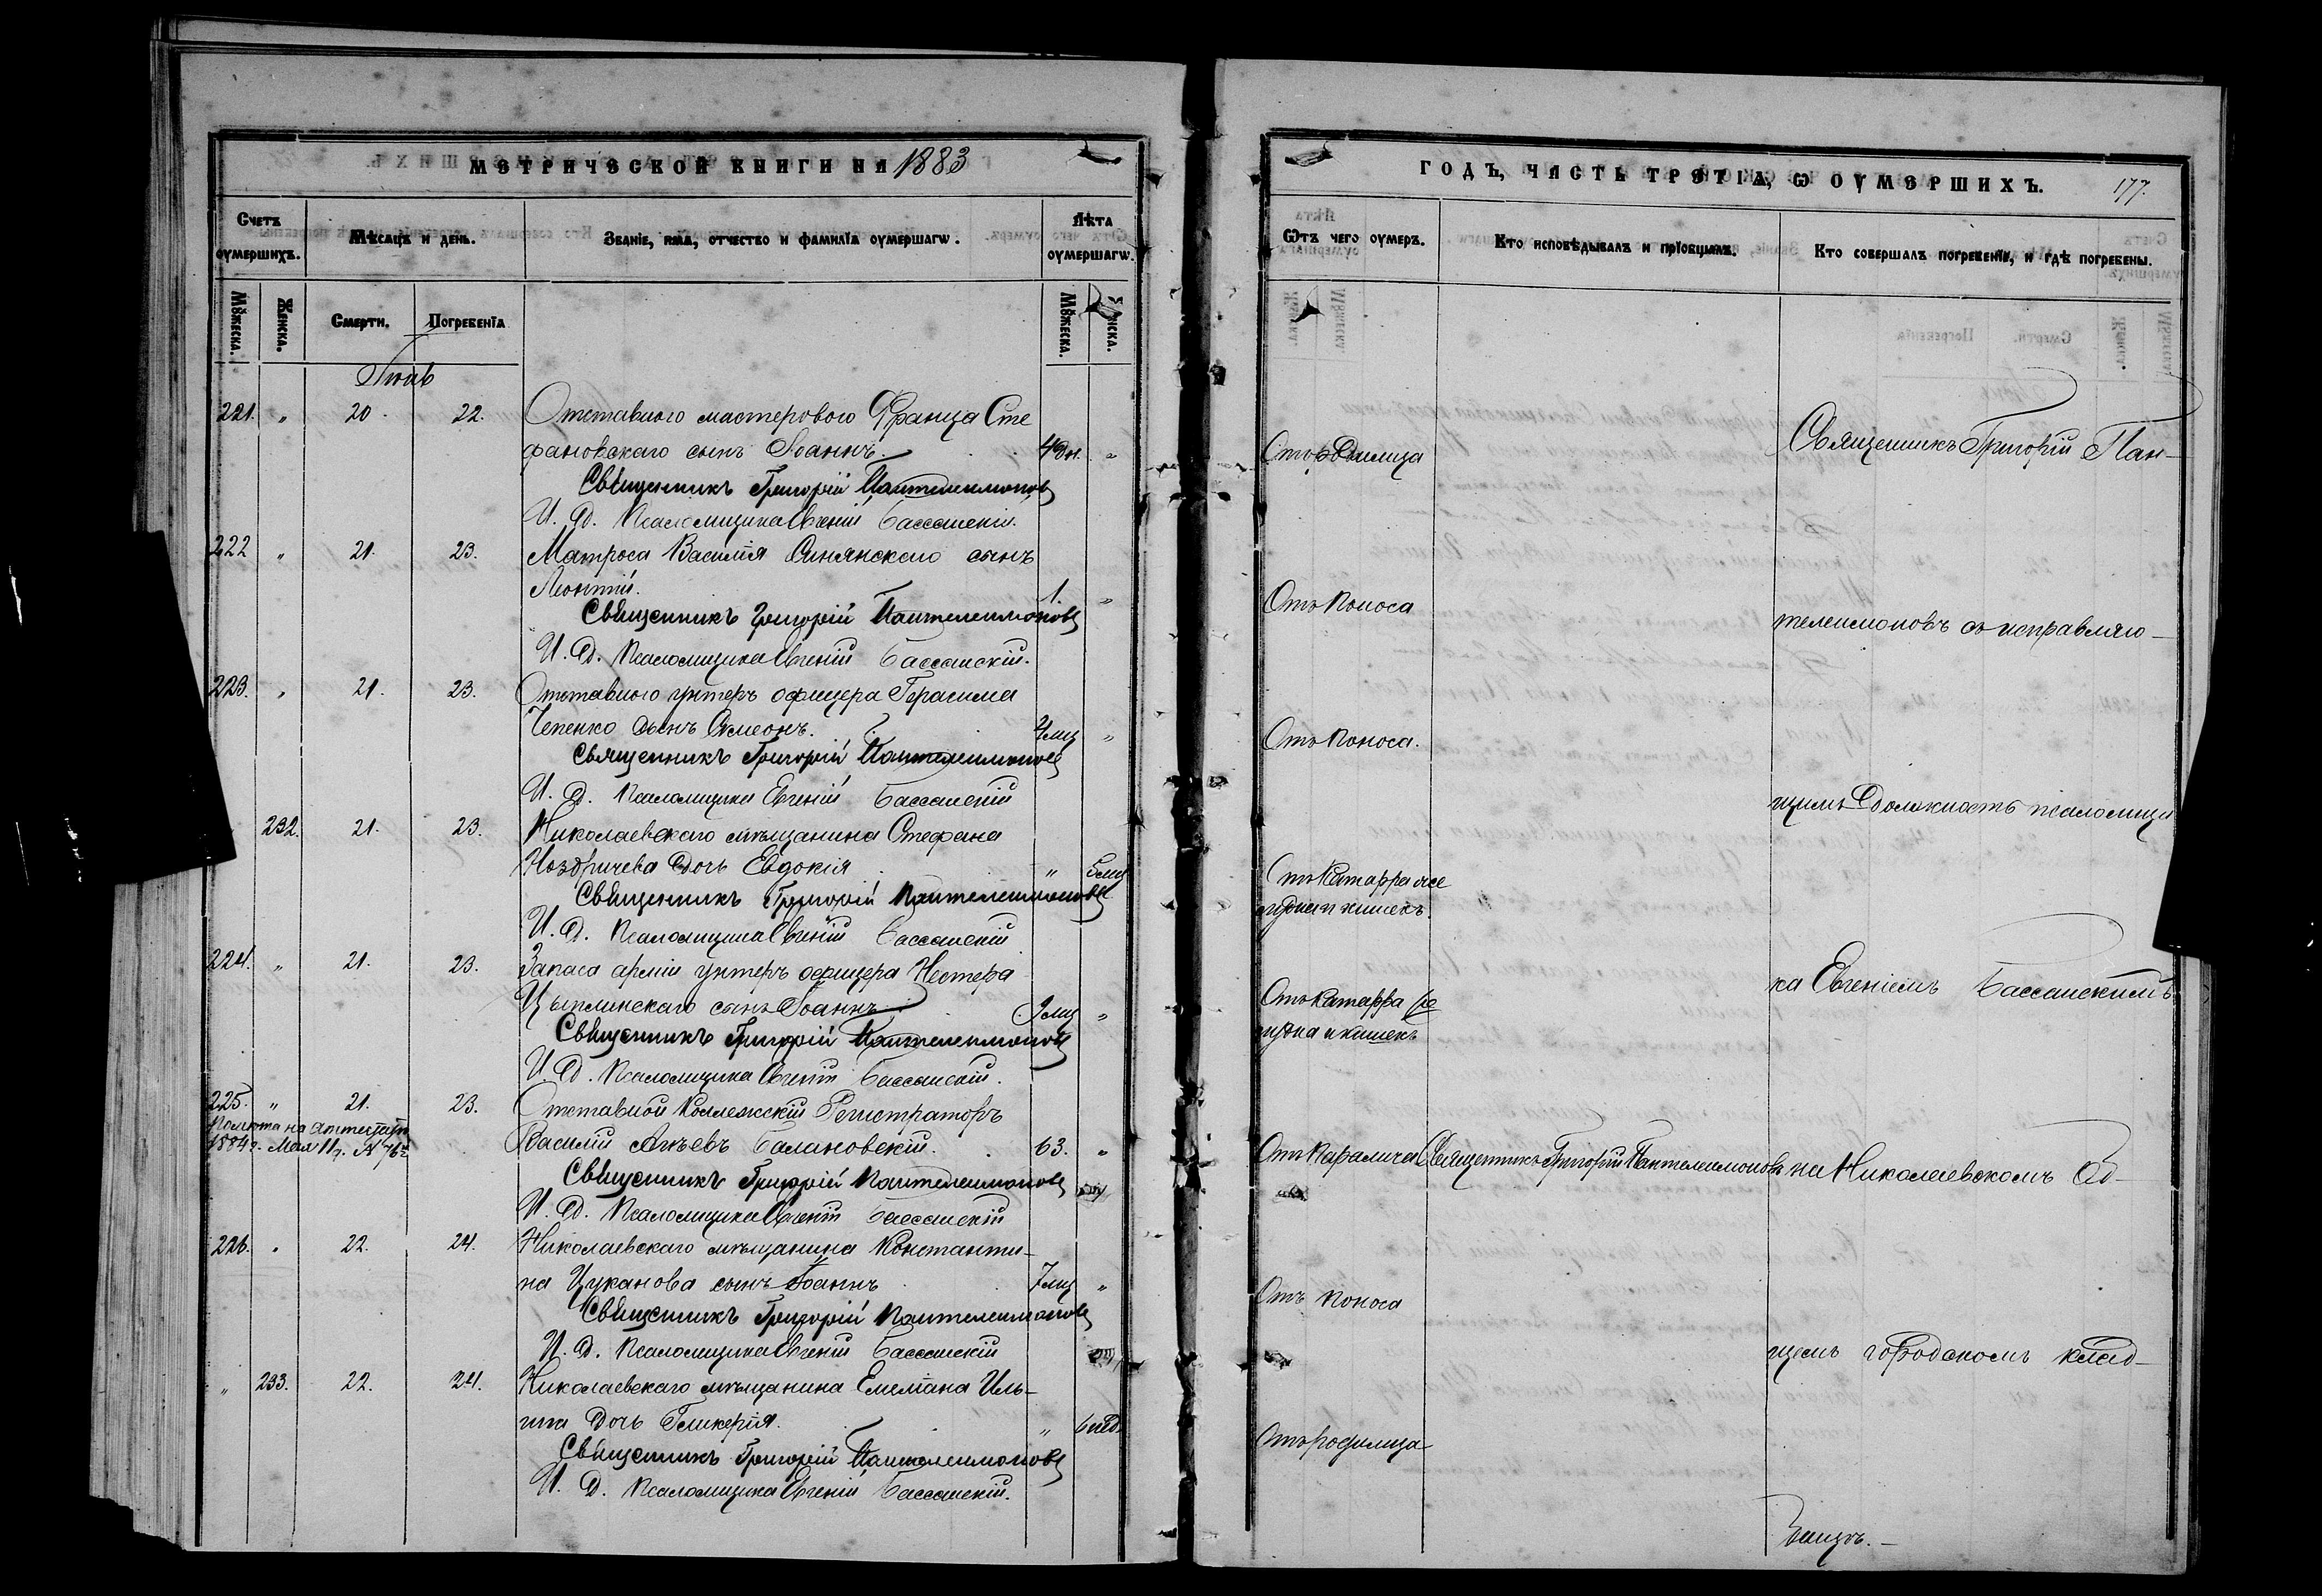 МЕТРИЧЕСКОЙ КНИГИ НА 1883
Счетъ оумершихъ.
Мѣсяцъ и день.
Званіе, имя, отчество и фамилїа оумершагѡ.
Лѣта оумершагѡ.
Мꙋжеска.
Женска.
Смерти.
Погребенїа
Мꙋжеска.
Іюль
221. " 20. 22. Отставного мастерового Франца Сте
фановскаго сынъ Іоаннъ. 4дн. "
Священникъ Григорій Пантелеимоновъ
И. Д. Псаломщика Евгеній Бассанскій.
222 " 21. 23. Матроса Василія Синянскаго сынъ
Леонтій. 1. "
Священникъ Григорій Пантелеимоновъ
И. Д. Псаломщика Евгеній Бассанскій.
223. " 21. 23. Отставного унтеръ офицера Герасима
Чепенко сынъ Симеонъ. "
Священникъ Григорій Пантелеимоновъ
И. Д. Псаломщика Евгеній Бассанскій
232. 21. 23. Николаевскаго мѣщанина Стефана
Ноздричева дочь Евдокія " 5мц
Священникъ Григорій Пантелеимоновъ
И. Д. Псаломщика Евгеній Бассанскій
224. " 21. 23. Запаса арміи унтеръ офицера Нестера
Цыплинскаго сынъ Іоаннъ. 9мц "
Священникъ Григорій Пантелеимоновъ
И. Д. Псаломщика Евгеній Бассанскій.
225. " 21. 23. Отставной Коллежскій Регистраторъ
Помѣта на аттестатѣ
1884 г. Мая 11 г. №
Василій Балановскій. 63. "
Священникъ Григорій Пантелеимоновъ
И. Д. Псаломщика Евгеній Бассанскій
226. " 22. 24. Николаевскаго мѣщанина Константи-
на Цуканова сынъ Іоаннъ 7мц "
Священникъ Григорій Пантелеимоновъ
И. Д. Псаломщика Евгеній Бассанскій
" 233. 22. 24. Николаевскаго мѣщанина Емеліана Иль-
ина дочь Гликерія. " 6нед.
Священникъ Григорій Пантелеимоновъ
И. Д. Псаломщика Евгеній Бассанскій.
ГОДЪ, ЧАСТЬ ТРЕТЇА, Ѡ ОУМЕРШИХЪ. 177.
Ѿтъ чего оумеръ.
Кто исповѣдывалъ и прїобщалъ.
Кто совершалъ погребенїе, и гдѣ погребены.
Отъ родимца
Священникъ Григорій Пан-
Отъ поноса
телеимоновъ съ исправляю-
Отъ поноса.
щимъ должность псаломщи
Отъ Катарра же
лудка и кишекъ.
Отъ катарра же
лудка и кишекъ
ка Евгеніемъ Бассанскимъ
Отъ паралича Священникъ Григорій Пантелеимоновъ на Николаевскомъ об-
Отъ поноса
щемъ городскомъ клад-
Отъ родимца
бищѣ.-